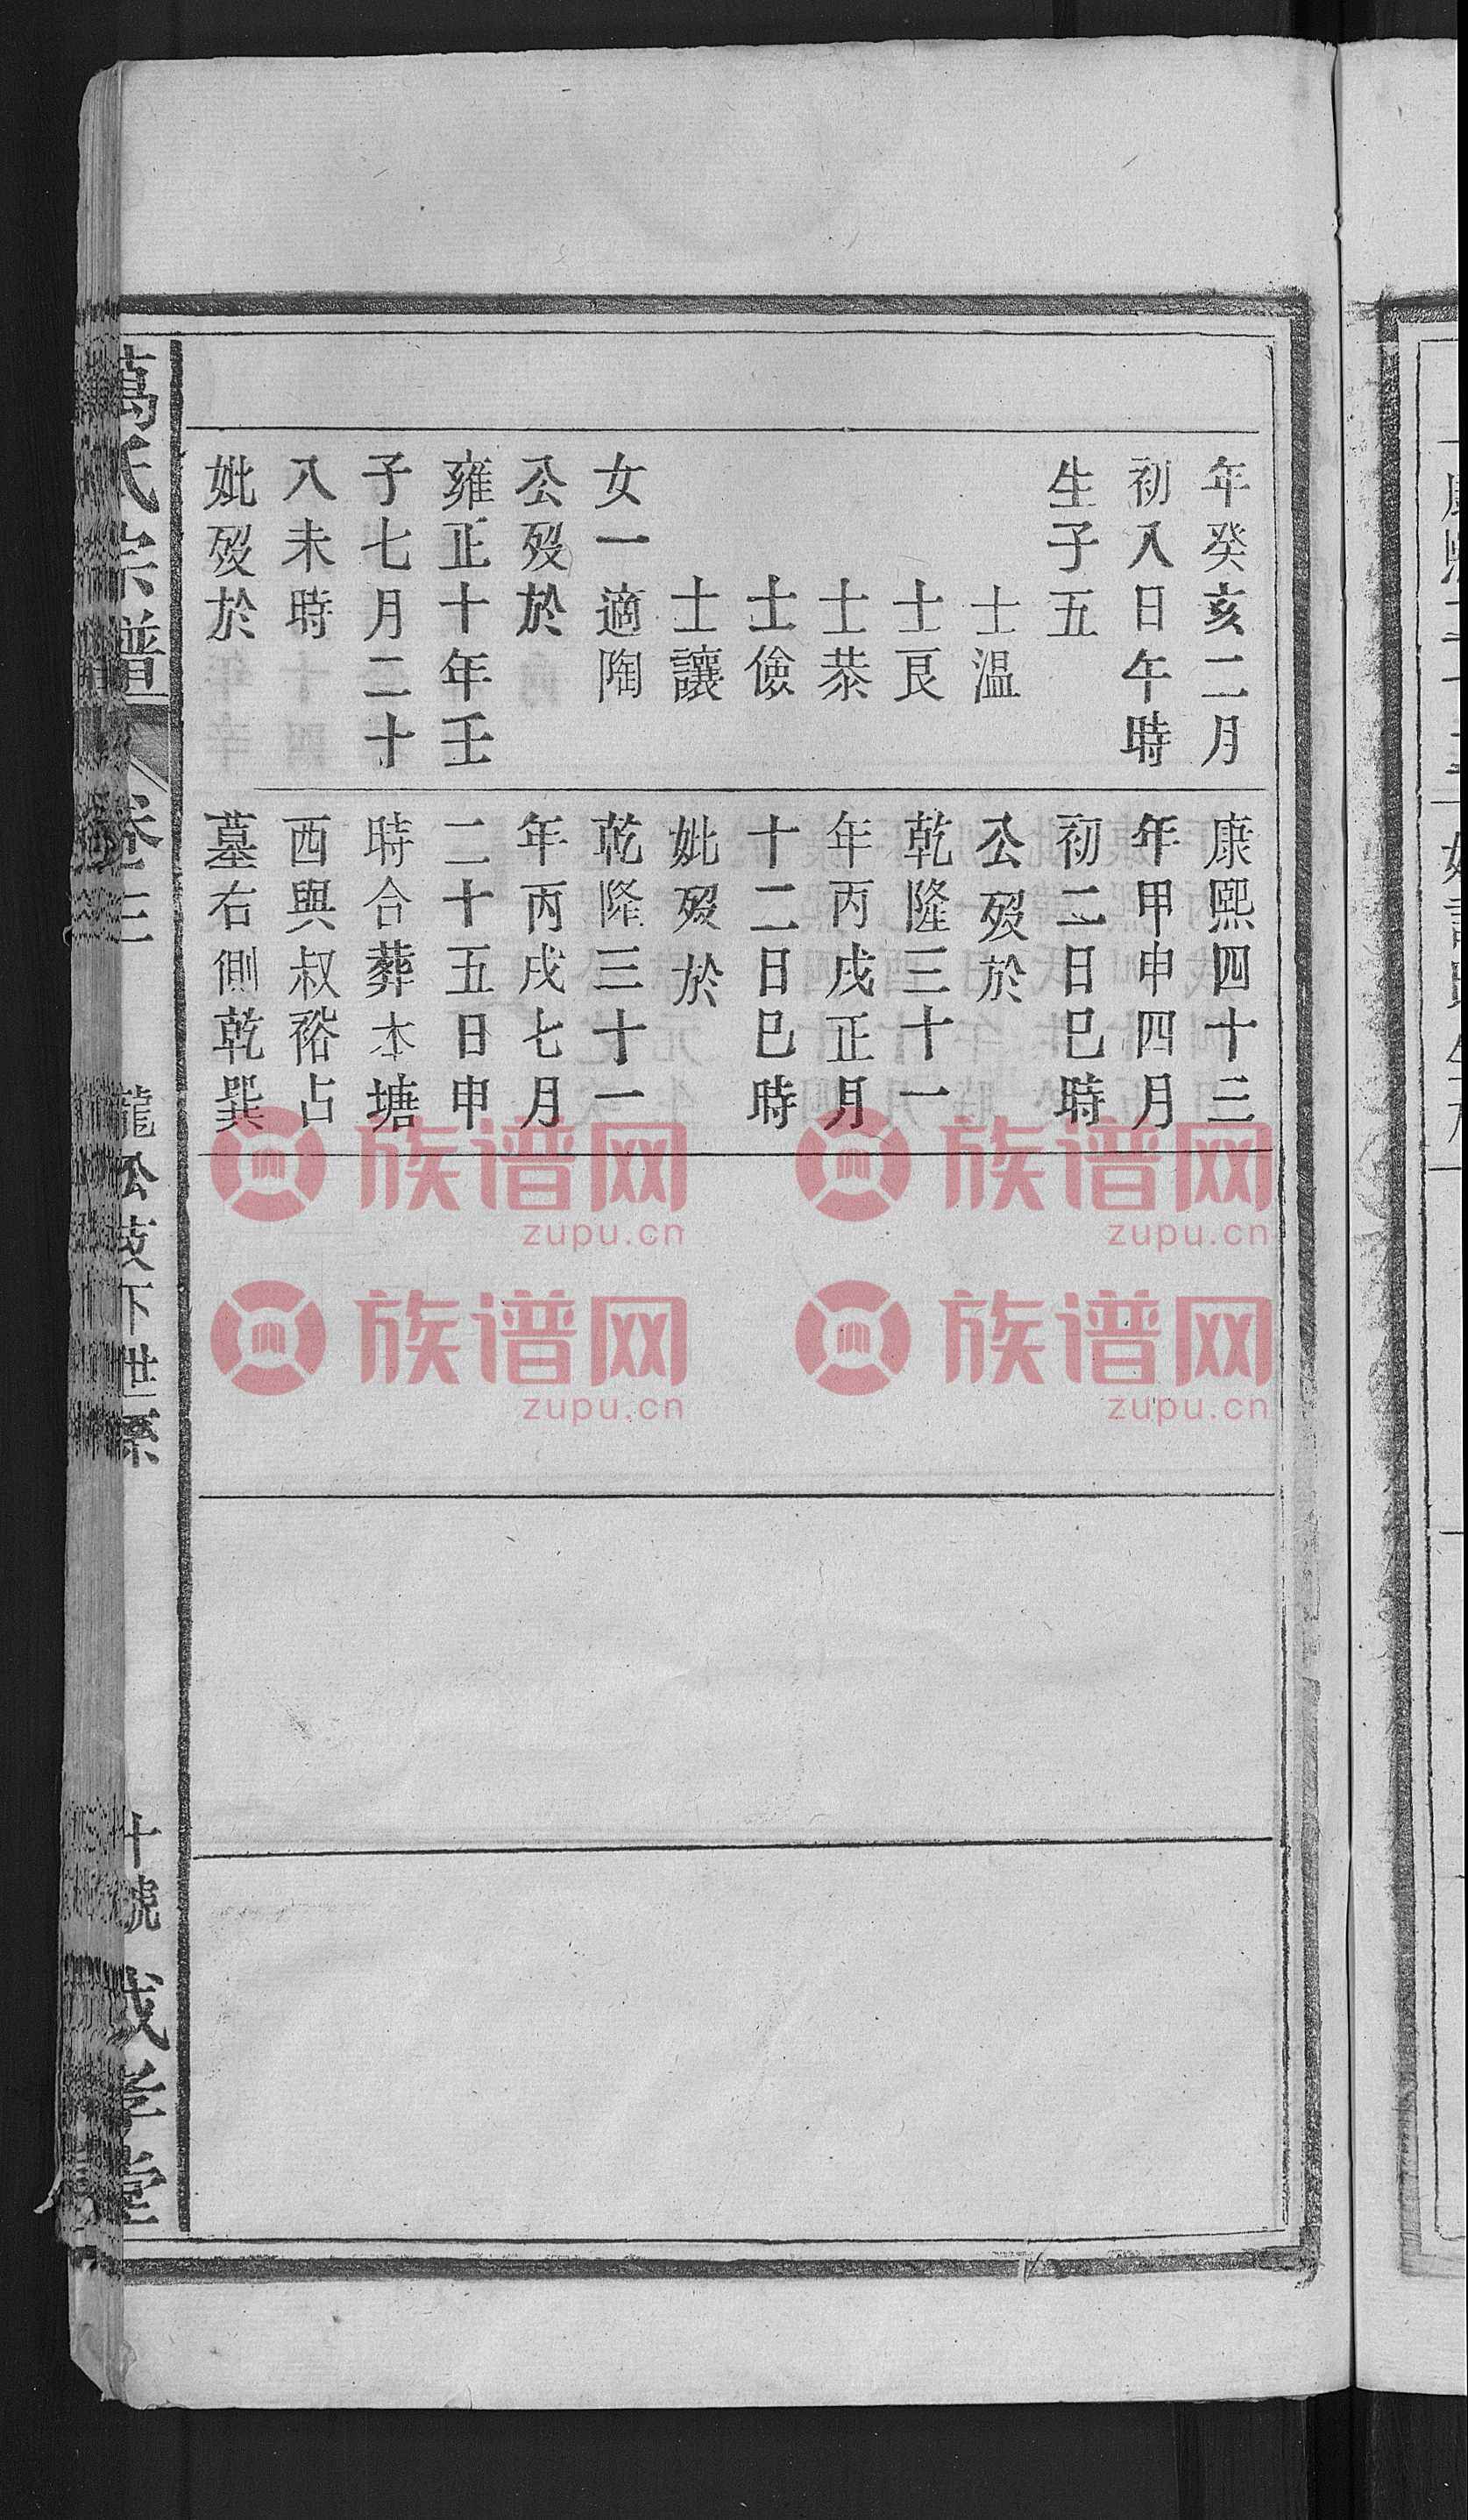 年癸亥二月
初八日午時
生子五
士温
士良
士恭
士儉
士讓
女一適陶
公歿於
雍正十年壬
子七月二十
八未時
妣歿於
康熙四十三
年甲申四月
初二日巳時
公歿於
乾隆三十一
年丙戌正月
十二日巳時
妣歿於
乾隆三十一
年丙戌七月
二十五日申
時合葬本塘
西與叔裕占
墓右側乾巽
萬氏宗譜
卷三
龍公支下世系
十號
成孝堂
族谱网
zupu.cn
族谱网
zupu.cn
族谱网
zupu.cn
族谱网
zupu.cn